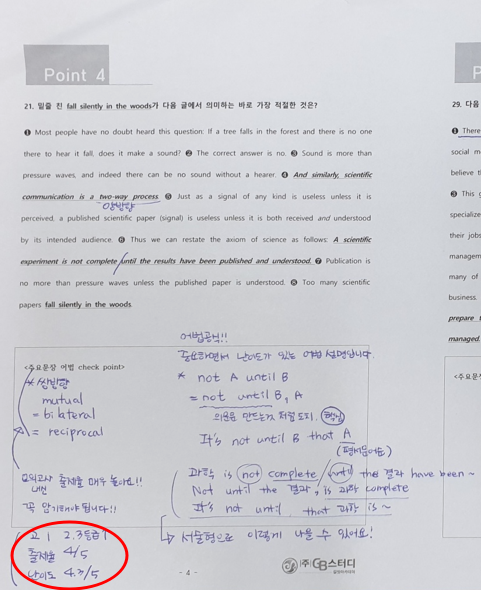 Point 4
P
21. 밑줄 친 fall silently in the woods가 다음 글에서 의미하는 바로 가장 적절한 것은?
❶ Most people have no doubt heard this question: If a tree falls in the forest and there is no one
there to hear it fall, does it make a sound? ❷ The correct answer is no. ❸ Sound is more than
pressure waves, and indeed there can be no sound without a hearer. ❹ And similarly, scientific
communication is a two-way process. ❺ Just as a signal of any kind is useless unless it is
양방향
perceived, a published scientific paper (signal) is useless unless it is both received and understood
by its intended audience. ❻ Thus we can restate the axiom of science as follows: A scientific
experiment is not complete until the results have been published and understood. ❼ Publication is
no more than pressure waves unless the published paper is understood. ❽ Too many scientific
papers fall silently in the woods.
29. 다음
❶ There
social m
believe t
❸ This g
specialize
their jobs
managem
many of
business.
prepare t
managed.
<주요문장 어법 check point>
* 쌍방향
mutual
= bilateral
= reciprocal
어법공식!!
중요하면서 난이도가 있는 어법 설명입니다.
* not A until B
= not until B, A
의문문 만드는것 처럼 도치. 핵심
It's not until B that A
(평서문어순)
모의고사 출제율 매우 높아요!!
내신
꼭 암기해야 됩니다!!
과학 is not complete / until the 결과 have been ~
Not until the 결과, is 과학 complete
It's not until that 과학 is ~
↳ 서술형으로 이렇게 나올 수 있어요!
고1 2.3등급
출제율 4/5
난이도 4.7/5
- 4 -
㈜GB스터디
<주요문